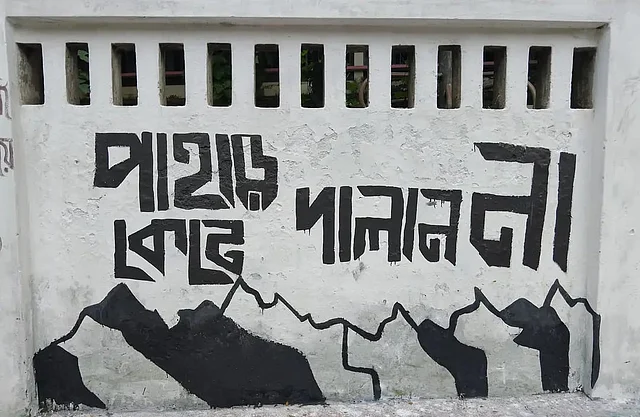 পাহাড়
কেটে
দালান না